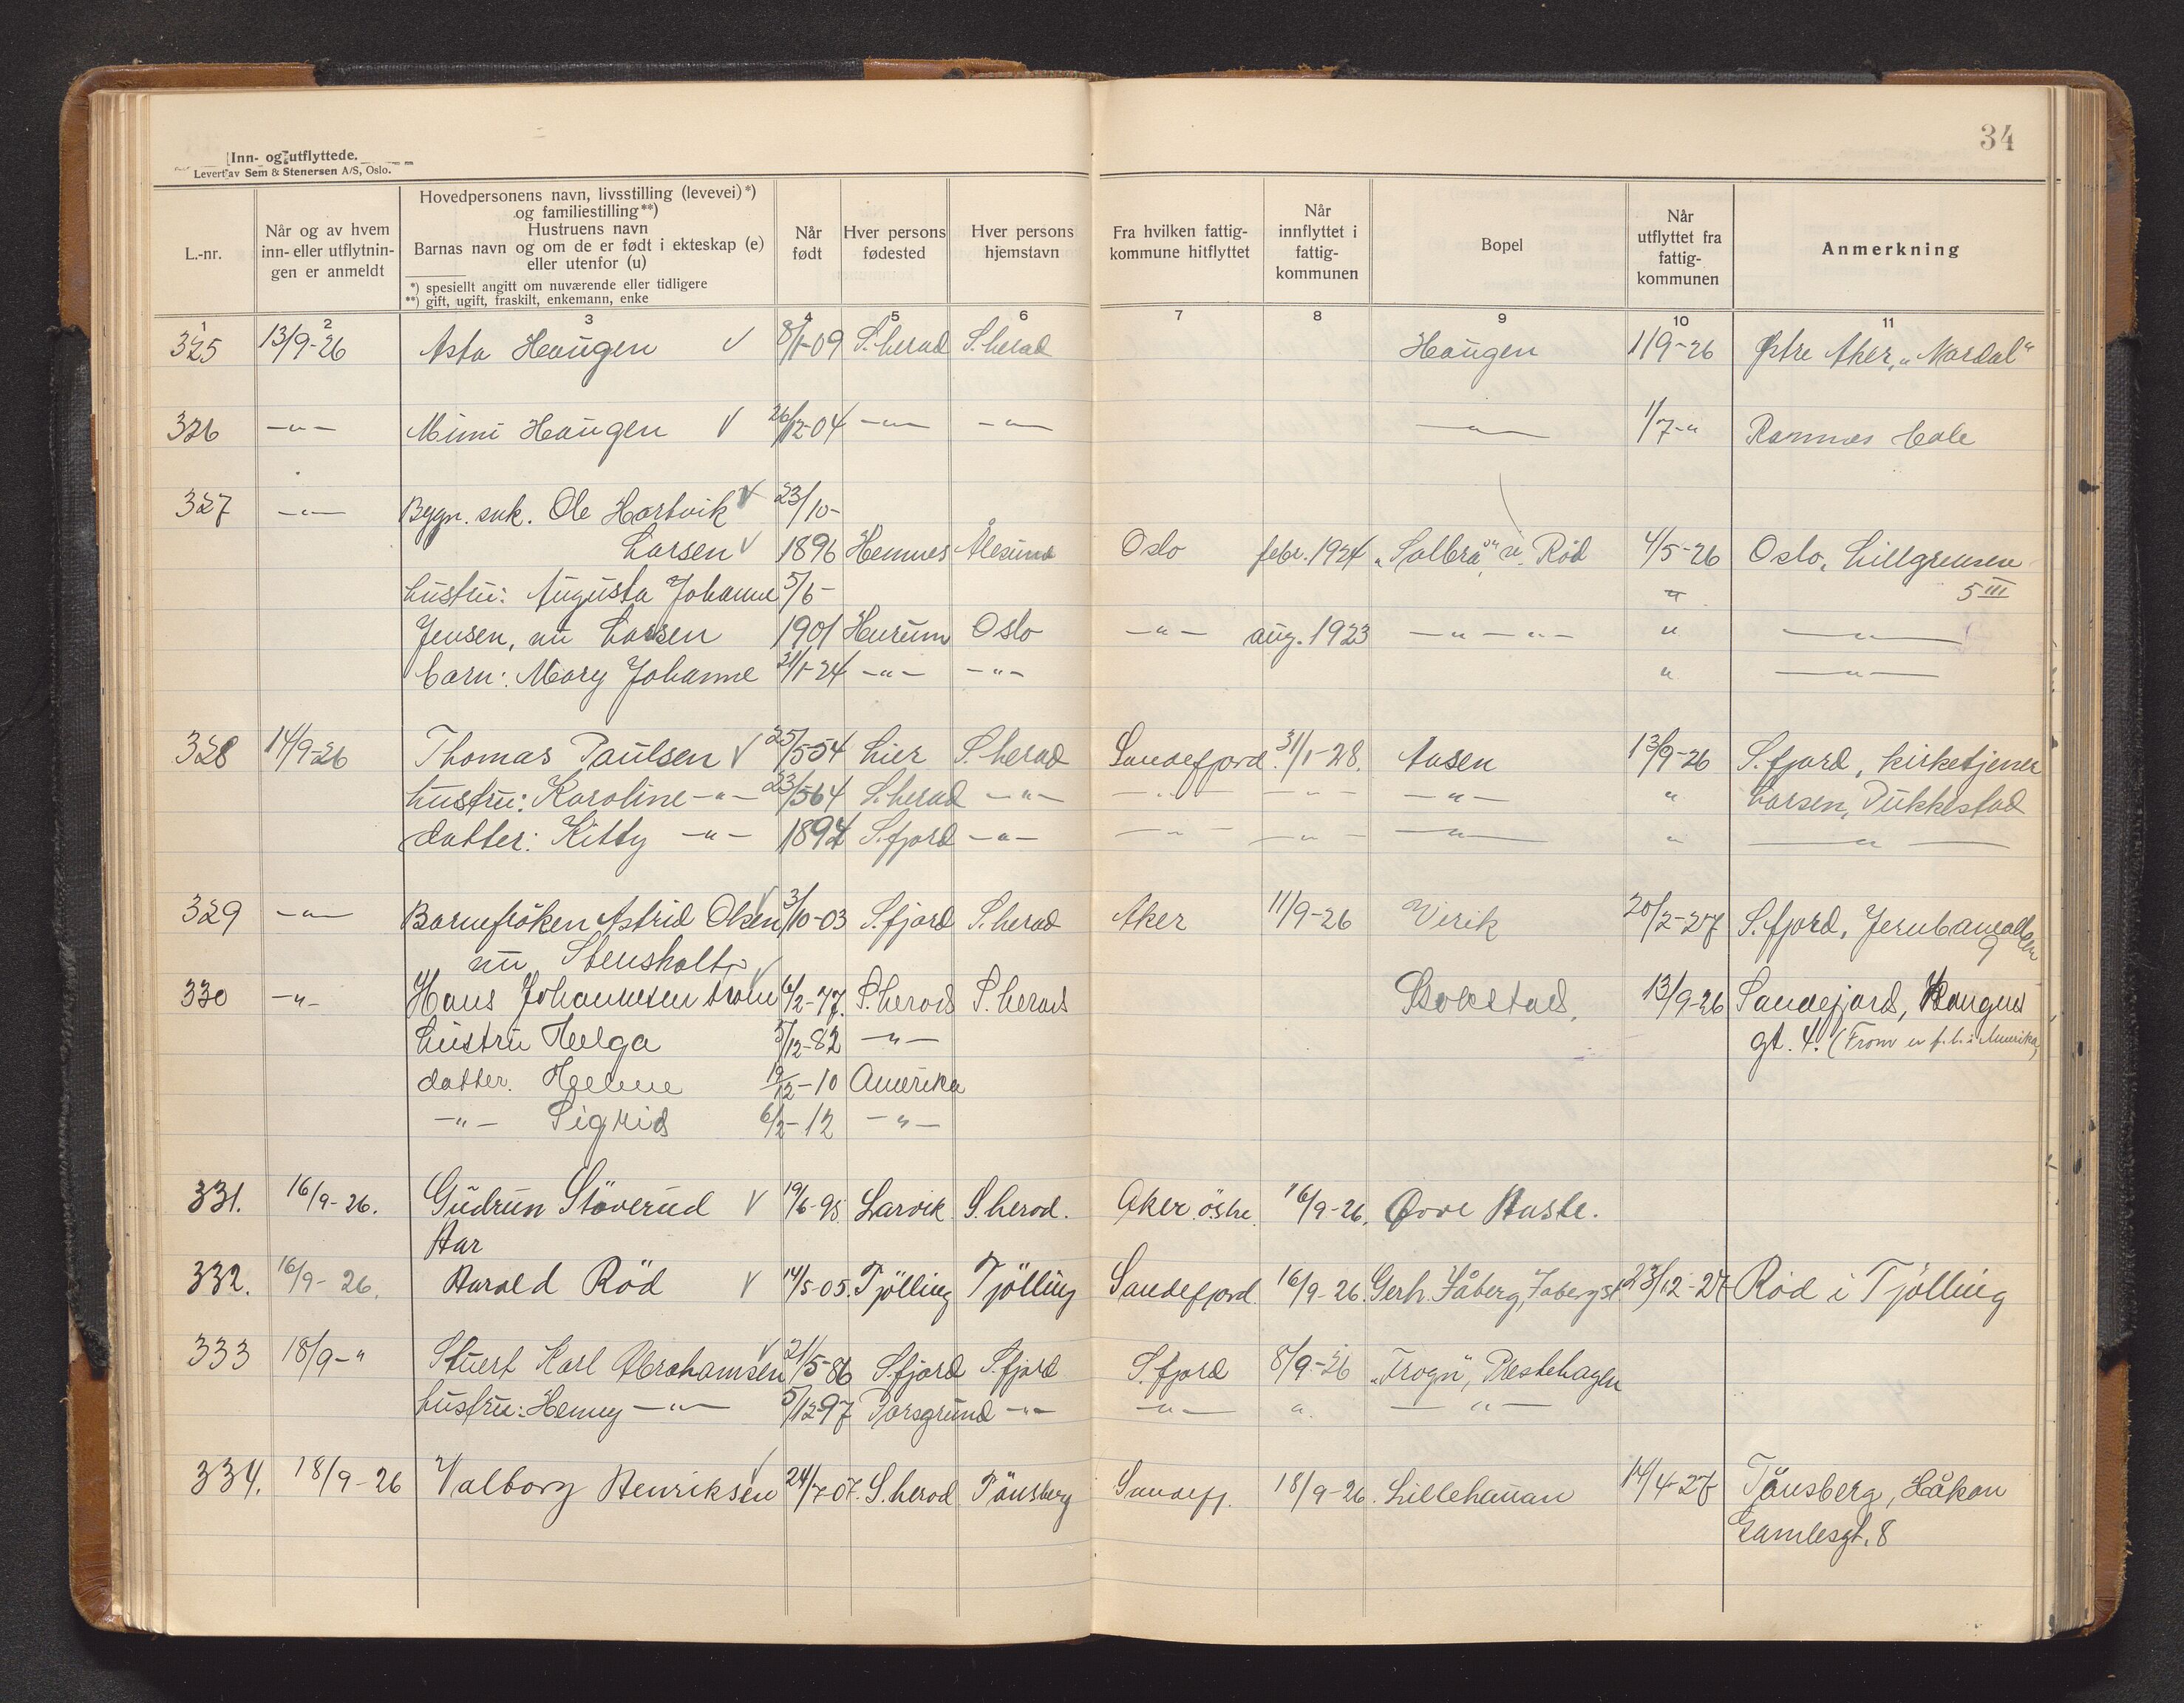 34
Inn- og utflyttede.
Levert av Sem & Stenersen A/S, Oslo.
L.-nr.
Når og av hvem
inn- eller utflytnin-
gen er anmeldt
Hovedpersonens navn, livsstilling (levevei)*)
og familiestilling**)
Hustruens navn
Barnas navn og om de er født i ekteskap (e)
eller utenfor (u)
*) spesiellt angitt om nuværende eller tidligere
**) gift, ugift, fraskilt, enkemann, enke
Når
født
Hver persons
fødested
Hver persons
hjemstavn
Fra hvilken fattig-
kommune hitflyttet
Når
innflyttet i
fattig-
kommunen
Bopel
Når
utflyttet fra
fattig-
kommunen
Anmerkning
1 2 3 4 5 6 7 8 9 10 11
325 13/9-26 Asta Haugen V 8/1-09 S.herad S.herad Haugen 1/9-26 Østre Aker, „Nordal"
326 -"- Mimi Haugen V 26/12-04 -"- -"- -"- 1/7-" Ramnes Hole
327 -"- Bygn. snk. Ole Hartvik V 23/10-
Larsen V 1896 Hemnes Ålesund Oslo febr. 1924 „Solbrå" v. Rød 4/5-26 Oslo, Lillgrensen
hustru: Augusta Johanne 5/6- " 5 III
Jensen, nu Larsen 1901 Hurum Oslo -"- aug. 1923 -"- -"- " -"-
barn: Mary Johanne 31/1-24 -"- -"- " -"-
328 14/9-26 Thomas Paulsen V 25/5 54 Lier S.herad Sandefjord 31/1-28. Aasen 13/9-26 S.fjord, kirketjener
hustru: Karoline -"- 23/5 64 S.herad -"- -"- -"- -"- " Larsen, Pukkestad
datter: Kitty -"- 1894 S.fjord -"- -"- -"- -"- " -"-
329 -"- Barnefrøken Astrid Olsen V 3/10-03 S.fjord S.herad Aker 11/9-26 Virik 20/2-27 S.fjord, Jernbanealleen
nu Stensholt 9
330 -"- Hans Johannesen From V 4/2-77. S.herad S.herad Bokstad. 13/9-26 Sandefjord, Kongens
hustru Helga 5/12-82 -"- gt. 4. (From er f.t. i Amerika)
datter. Helene 19/12-10 Amerika
-"- Sigrid 6/2-12 -"-
331. 16/9-26. Gudrun Stöverud V 19/6-95 Larvik S.herad. Aker östre. 16/9-26. Övre Hasle.
Har
332. 16/9-26. Harald Röd V 14/5-05. Tjölling Tjölling Sandefjord. 16/9-26. Gerh. Fåberg, Fabergst 23/12-27 Röd i Tjölling
333 18/9-" Stuert Karl Abrahamsen V 21/5-86 S.fjord S.fjord S.fjord 8/9-26 „Frogn", Prestehagen
hustru: Henny -"- 5/12 97 Porsgrund -"- -"- " -"-
334. 18/9-26 Valborg Henriksen V 24/7-07. S.herad Tönsberg Sandefj. 18/9-26. Lillehauan 14/4-27 Tönsberg, Håkon
Gamlesgt. 8